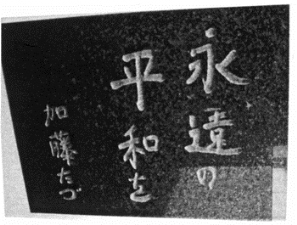 永遠の
平和を
加藤たづ